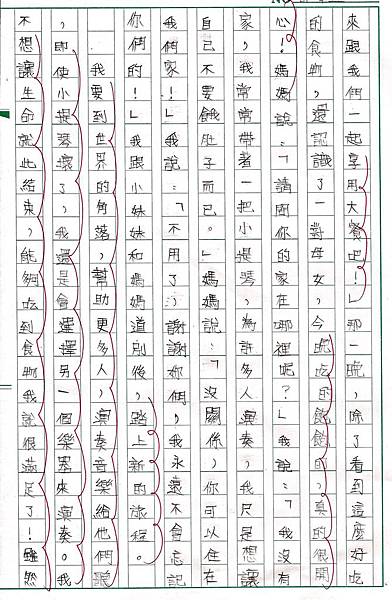 來跟我們一起享用大餐吧!」那一晚,除了看到這麼好吃
的食物,還認識了一對母女,今晚吃的飽飽的,真的很開
心!媽媽說:「請問你的家在哪裡呢?」我說:「我沒有
家,我常常帶著一把小提琴,為許多人演奏,我只是想讓
自己不要餓肚子而已。」媽媽說:「沒關係,你可以住在
我們的家!」我說:「不用了,謝謝妳們,我永遠不會忘記
你們的!」我跟小妹和媽媽道別後,踏上新的旅程。
我要到世界的角落,幫助更多人,演奏音樂給他們聽
,即使小提琴壞了,我還是會選擇另一個樂器來演奏。我
不想讓生命就此結束,能夠吃到食物我就很滿足了!雖然